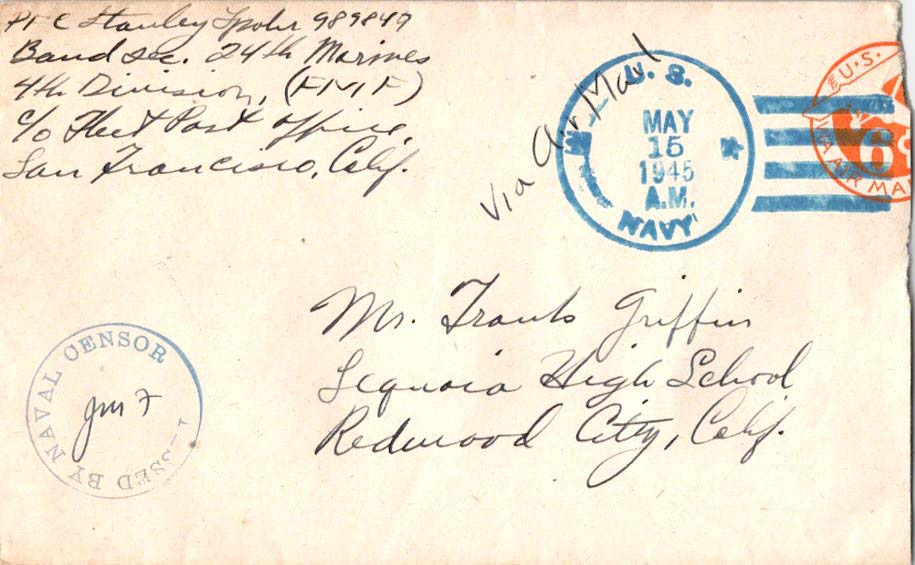 Pfc Stanley Spohr 989849
Band sec. 24th Marines
4th Division, (FMF)
c/o Fleet Post Office,
San Francisco, Calif.
Via Air Mail
U. S.
MAY
15
1945
A.M.
NAVY
U.S.
6¢
VIA AIR MA
Mr. Frank Griffin
Sequoia High School
Redwood City, Calif.
SSED BY NAVAL CENSOR